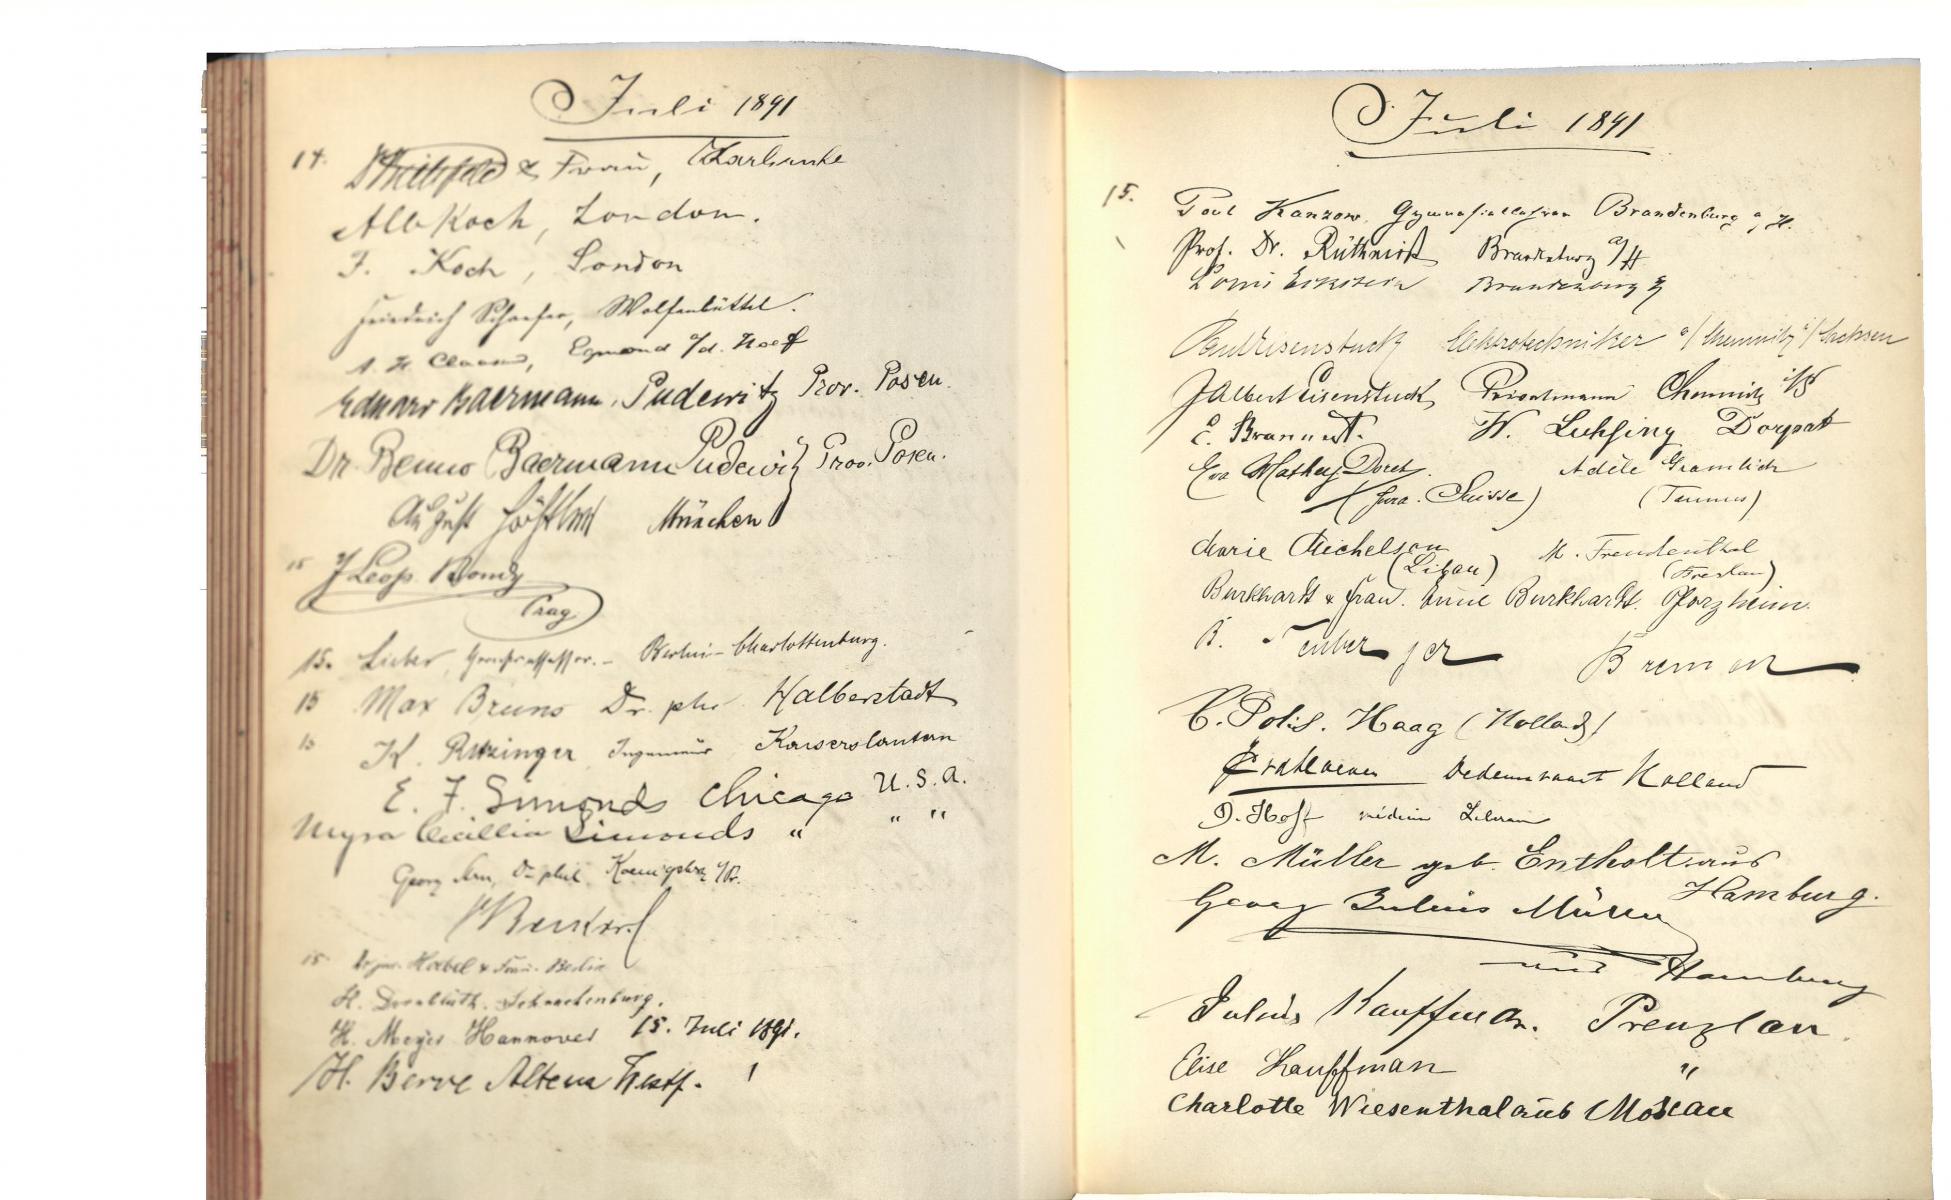 Juli 1891
14. & Frau, Karlsruhe
Alb Koch, London.
F. Koch, London
Friedrich Schaefer, Wolfenbüttel.
Egmond a/d. Hoef
Eduard Baermann, Pudewitz Prov. Posen.
Dr. Benno Baermann Pudewitz Prov. Posen.
August München
15 J Leop. Bondy
Prag
15. Lieber, Berlin-Charlottenburg.
15 Max Bruns Dr. phil. Halberstadt
15 K. Ritzinger Ingenieur Kaiserslautern
E. F. Simonds Chicago U.S.A.
Myra Cecillia Simonds " " "
Georg Dr phil. Koenigsberg i/Pr.
15 Dr jur. Hoebel & Frau. Berlin
H. Dornbluth. Schnackenburg.
H. Meyer Hannover 15. Juli 1891.
H. Berve Altena Westf.
Juli 1891
15. Paul Kanzow, Gymnasiallehrer Brandenburg a/H.
Prof. Dr. Brandenburg a/H
Eckstein Brandenburg
Paul Eisenstuck Elektrotechniker a/ Chemnitz i/Sachsen
J Albert Eisenstuck, Privatmann Chemnitz i/S
E. W. Dorpat
Eva Mathey-Doret. Adèle Gramlich
(Jura. Suisse) (Taunus)
Marie Michelson M. Freudenthal
(Libau) (Breslau).
Burkhardt & Frau. Burkhardt. Pforzheim.
B. Bremen
C. Polis. Haag (Holland)
Dedemsvaart Holland
D. Hoft
M. Müller geb. Entholt aus
Hamburg.
Georg Julius Müller
aus Hamburg
Julius Kauffman. Prenzlau
Elise Kauffman "
Charlotte Wiesenthal aus Moskau